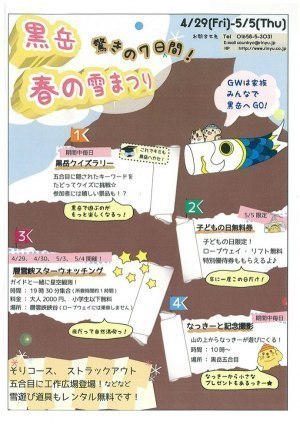 黒岳
春の雪まつり
驚きの7日間!
4/29(Fri)-5/5(Thu)
お問合せ先
Tel 01658-5-3031
GWは家族
みんなで
黒岳へGO!
1
期間中毎日
黒岳クイズラリー
五合目に隠されたキーワードを
たどってクイズに挑戦☆
参加者には嬉しい景品も!?
黒岳で遊ぶのが
もっと楽しくなるっ!
2
5/5 限定
子どもの日無料券
子どもの日限定!
ロープウェイ・リフト無料
特別優待券ももらえるよ♪
年に一度この日だけ!
3
4/29、4/30、5/3、5/4 開催!
層雲峡スターウォッチング
ガイドと一緒に星空観測!
時間:19時30分集合(所要時間約1時間)
料金:大人2000円、小学生以下無料
場所:層雲峡渓谷(ロープウェイには乗車しません)
夜だって自然満喫っ!
4
期間中毎日
なっきーと記念撮影
山の上からなっきーが遊びにくる!
時間:10時~
場所:黒岳五合目
なっきーから小さな
プレゼントもあるっきー★
そりコース、ストラックアウト
五合目に工作広場登場!などなど
雪遊び道具もレンタル無料です!